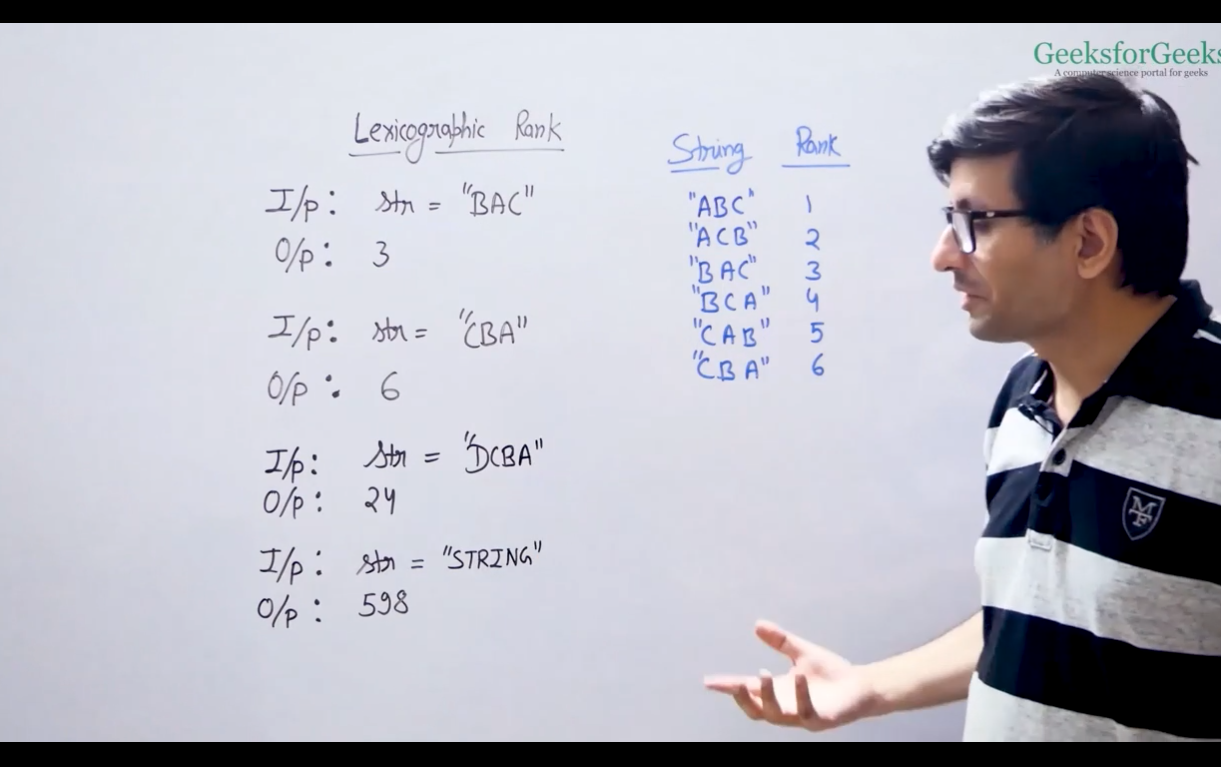 GeeksforGeeks
A computer science portal for geeks
Lexicographic Rank
I/p: str = "BAC"
O/p: 3
I/p: str = "CBA"
O/p: 6
I/p: str = "DCBA"
O/p: 24
I/p: str = "STRING"
O/p: 598
String Rank
"ABC" 1
"ACB" 2
"BAC" 3
"BCA" 4
"CAB" 5
"CBA" 6
MF